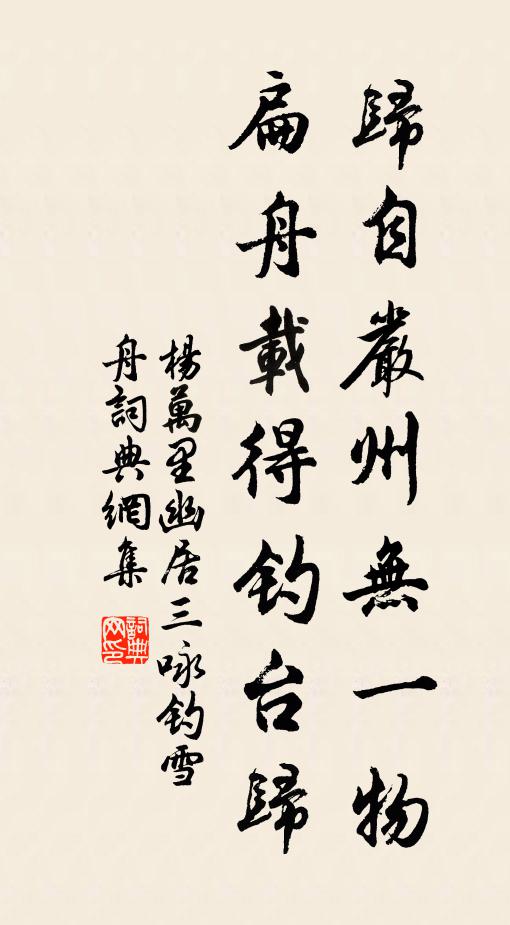 歸自嚴州無一物
扁舟載得釣台歸
楊萬里幽居三咏釣雪
舟詞典網集
詞典网印